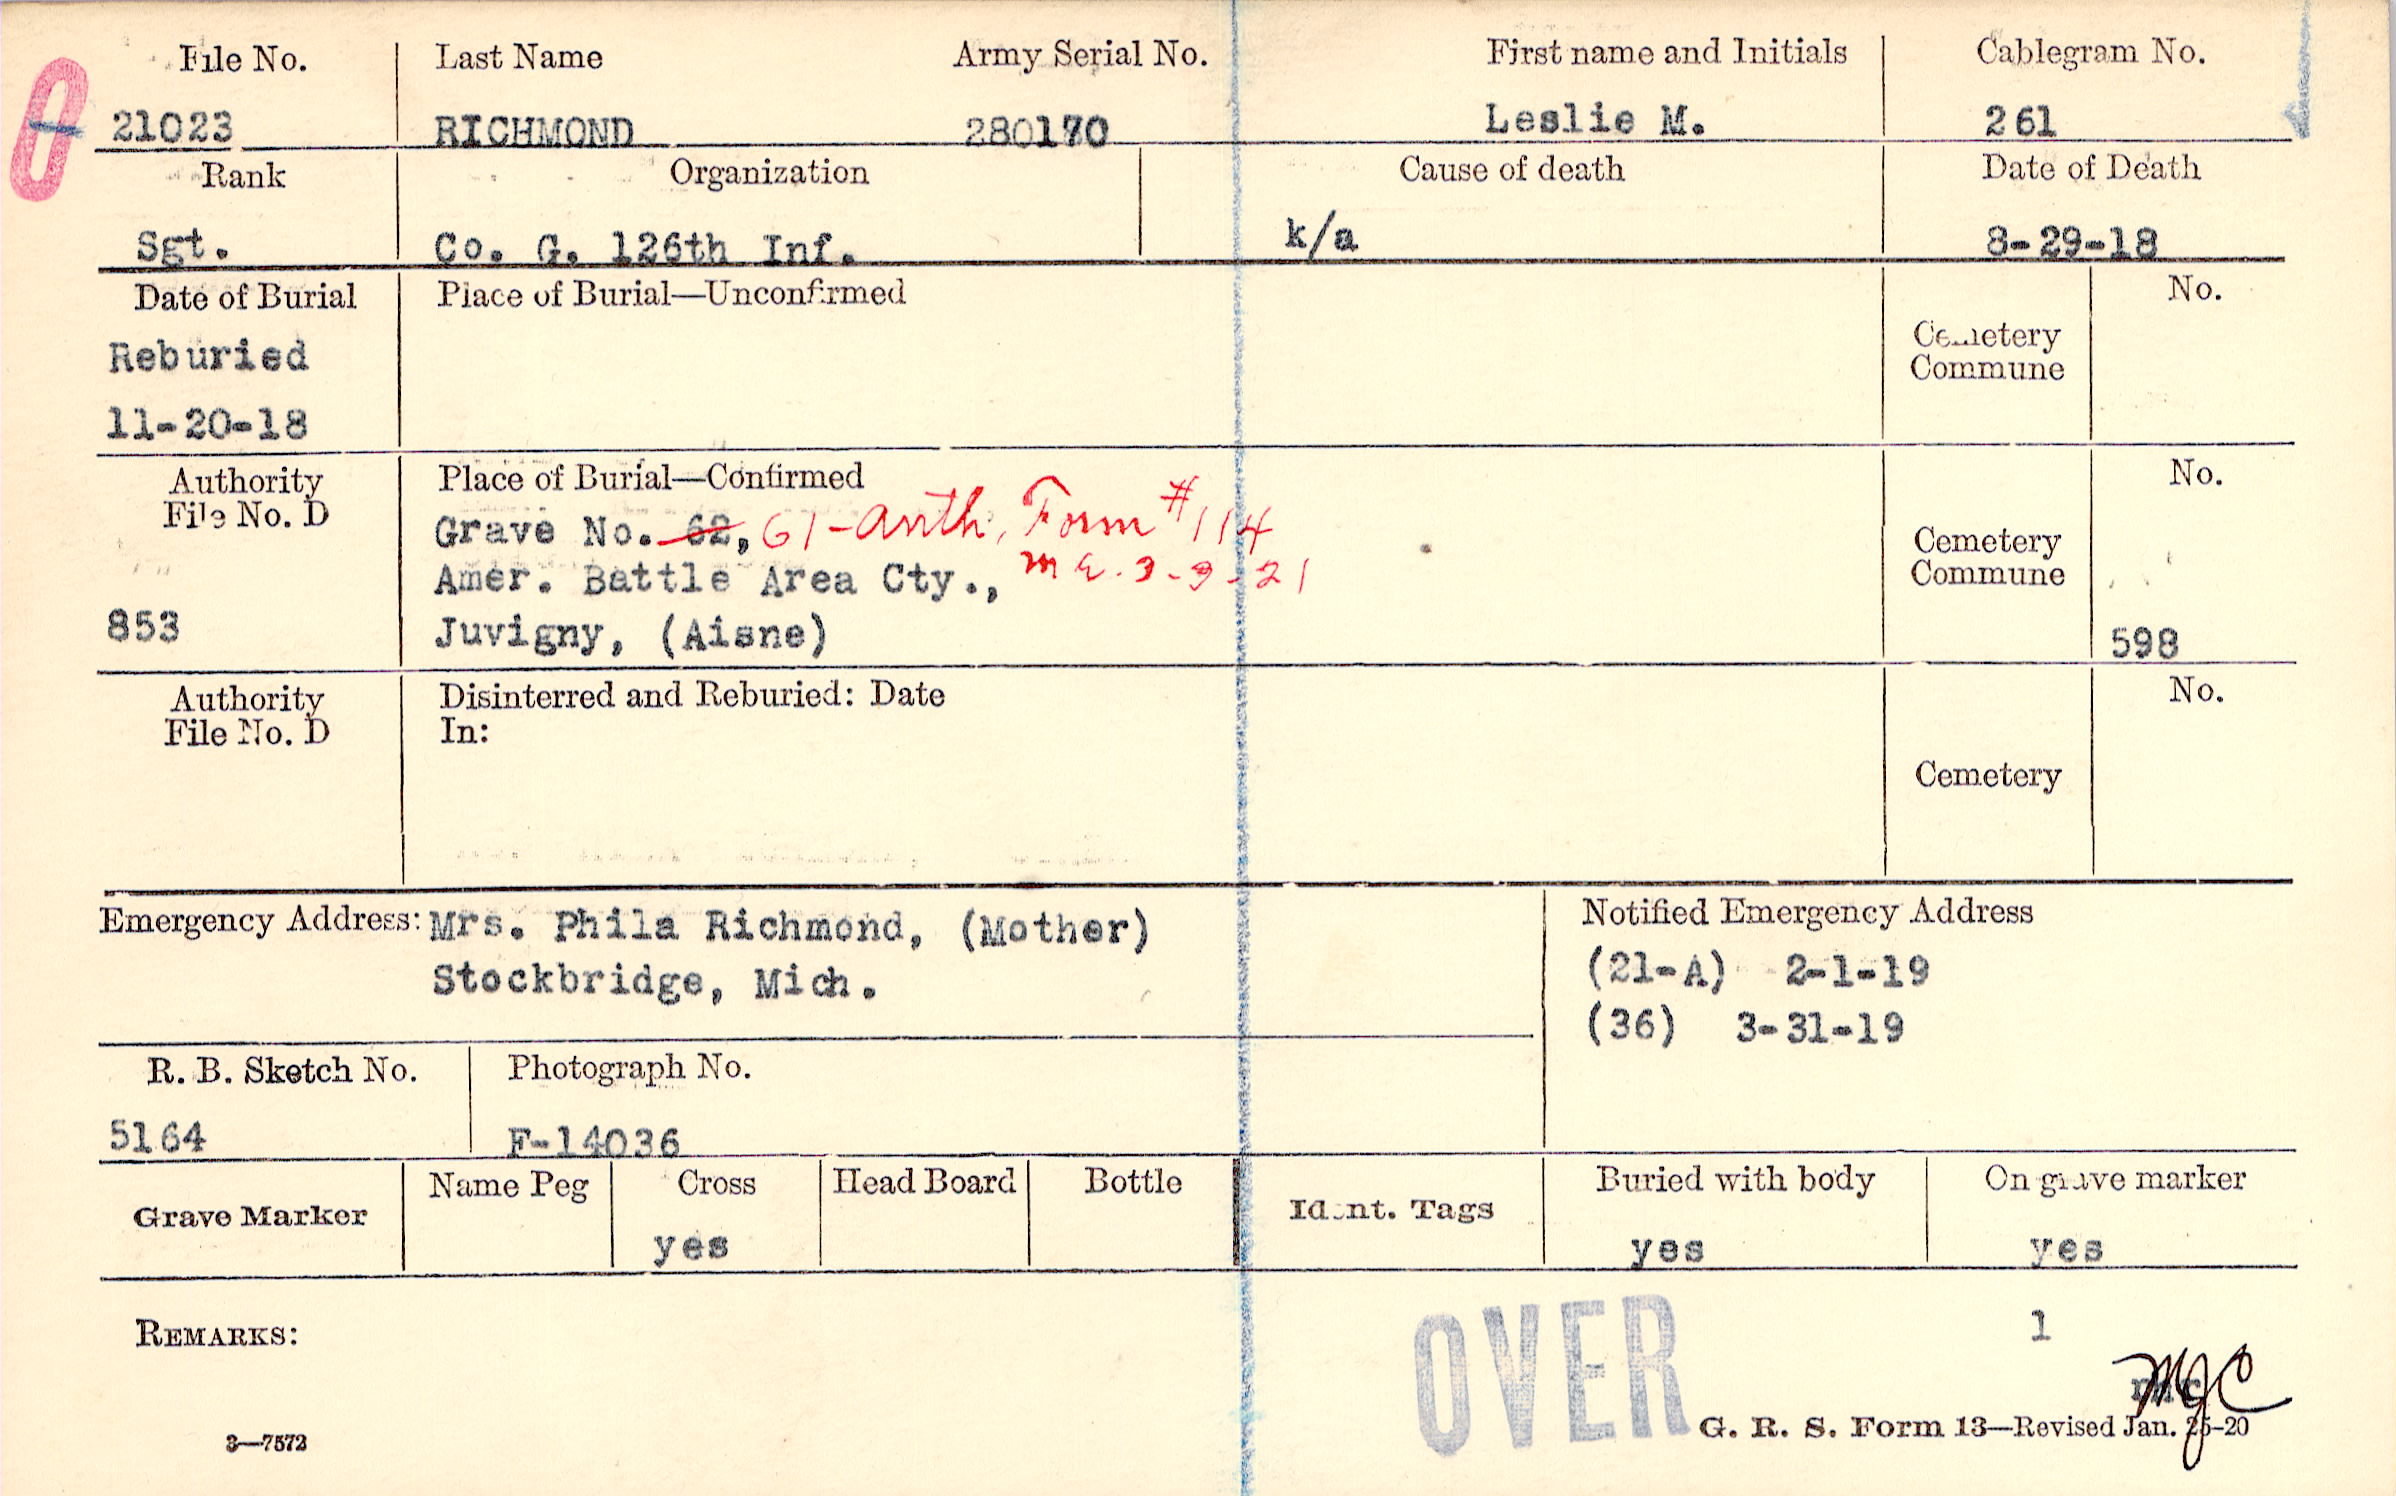 File No. Last Name Army Serial No. First name and Initials Cablegram No.
21023 RICHMOND 280170 Leslie M. 261
Rank Organization Cause of death Date of Death
Sgt. Co. G. 126th Inf. k/a 8-29-18
Date of Burial Place of Burial—Unconfirmed No.
Reburied
11-20-18
Cemetery
Commune
Authority Place of Burial—Confirmed No.
File No. D
Grave No. 62, 61-auth, Form #114
Amer. Battle Area Cty., 3-9-21
853 Juvigny, (Aisne)
Cemetery
Commune
598
Authority Disinterred and Reburied: Date No.
File No. D In:
Cemetery
Emergency Address: Mrs. Phila Richmond, (Mother)
Stockbridge, Mich.
Notified Emergency Address
(21-A) 2-1-19
(36) 3-31-19
R. B. Sketch No. Photograph No.
5164 F-14036
Grave Marker Name Peg Cross Head Board Bottle Ident. Tags Buried with body On grave marker
yes yes yes
REMARKS:
OVER
1
MJC
3—7572 G. R. S. Form 13—Revised Jan. 25-20